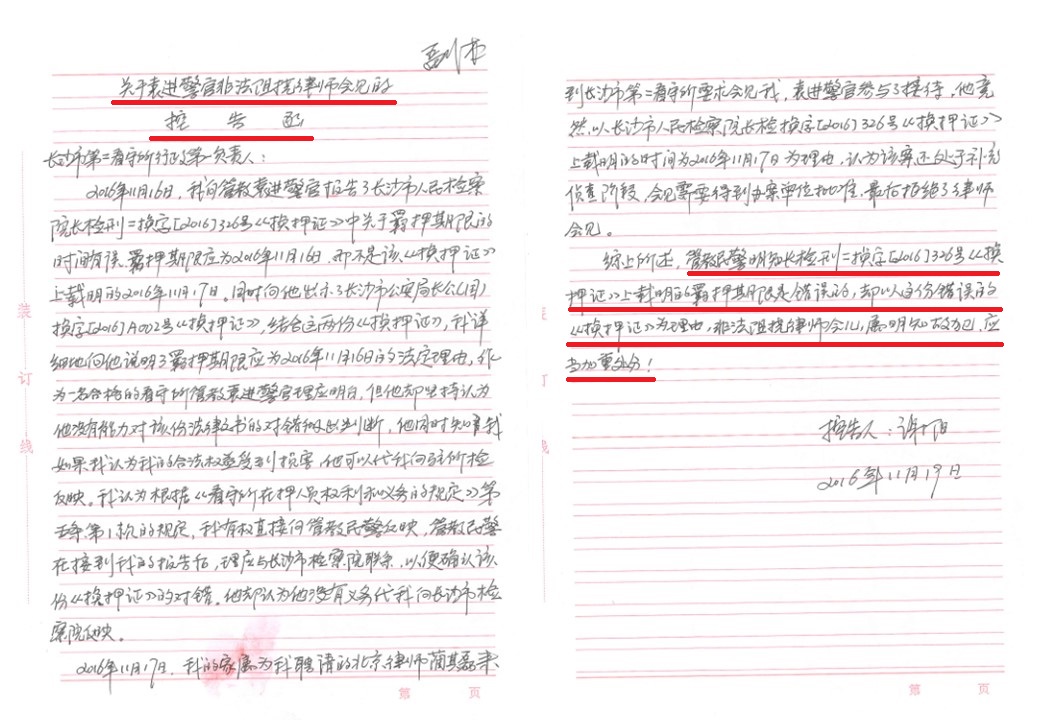 关于袁进警官非法阻挠律师会见的
控告函
长沙市第二看守所行政第一负责人：
2016年11月16日，我向管教袁进警官报告了长沙市人民检察
院长检刑二换字[2016]326号《换押证》中关于羁押期限的
时间有误，羁押期限应为2016年11月16日，而不是该《换押证》
上载明的2016年11月17日。同时向他出示了长沙市公安局长公(国)
换字[2016]A002号《换押证》，结合这两份《换押证》，我详
细地向他说明了羁押期限应为2016年11月16日的法定理由，作
为一名合格的看守所管教袁进警官理应明白，但他却坚持认为
他没有能力对该份法律文书的对错做出判断，他同时告知我
如果我认为我的合法权益受到损害，他可以代我向驻所检
反映。我认为根据《看守所在押人员权利和义务的规定》第
条第1款的规定，我有权直接向管教民警反映，管教民警
在接到我的控告后，理应与长沙市检察院联系，以便确认该
份《换押证》的对错。他却认为他没有义务代我向长沙市检
察院反映。
2016年11月17日，我的家属为我聘请的北京律师蔺其磊来
第 页
到长沙市第二看守所要求会见我，袁进警官参与了接待，他竟
然以长沙市人民检察院长检换字[2016]326号《换押证》
上载明的时间为2016年11月17日为理由，认为该案还处于补充
侦查阶段，会见需要得到办案单位批准，最后拒绝了律师
会见。
综上所述，管教民警明知长检刑二换字[2016]326号《换
押证》上载明的羁押期限是错误的，却以这份错误的
《换押证》为理由，非法阻挠律师会见，属明知故犯，应
当加重处分！
控告人：谢阳
2016年11月19日
第 页
装
订
线
订
线